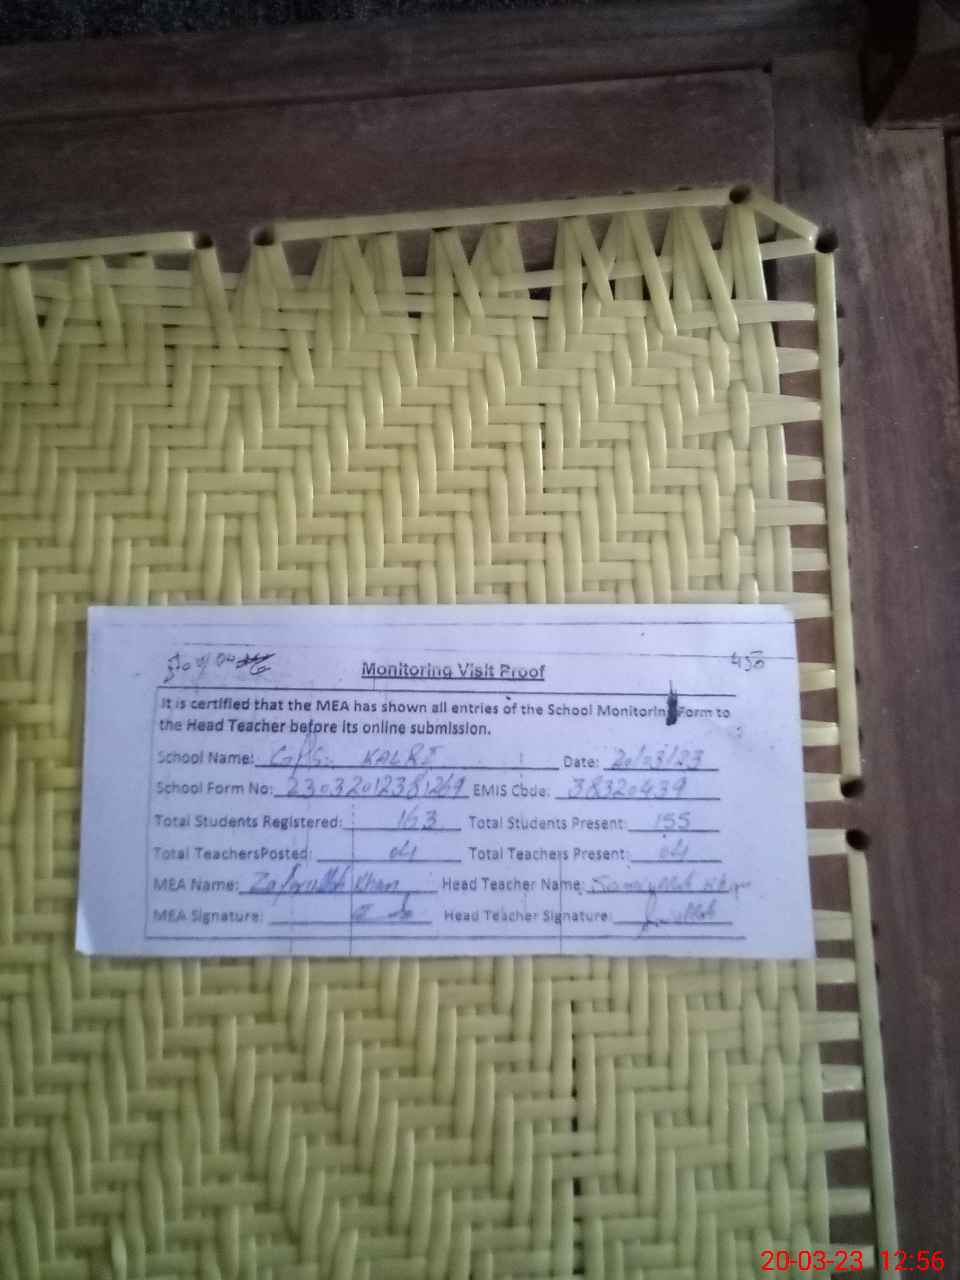 450
Monitoring Visit Proof
It is certified that the MEA has shown all entries of the School Monitoring Form to
the Head Teacher before its online submission.
School Name: GPS. KALRI Date: 20/03/23
School Form No: 23032012381269 EMIS Code: 38320439
Total Students Registered: 163 Total Students Present: 155
Total TeachersPosted: 04 Total Teachers Present: 04
MEA Name: Zafarullah Khan Head Teacher Name: Samiullah Khan
MEA Signature: Head Teacher Signature:
20-03-23 12:56